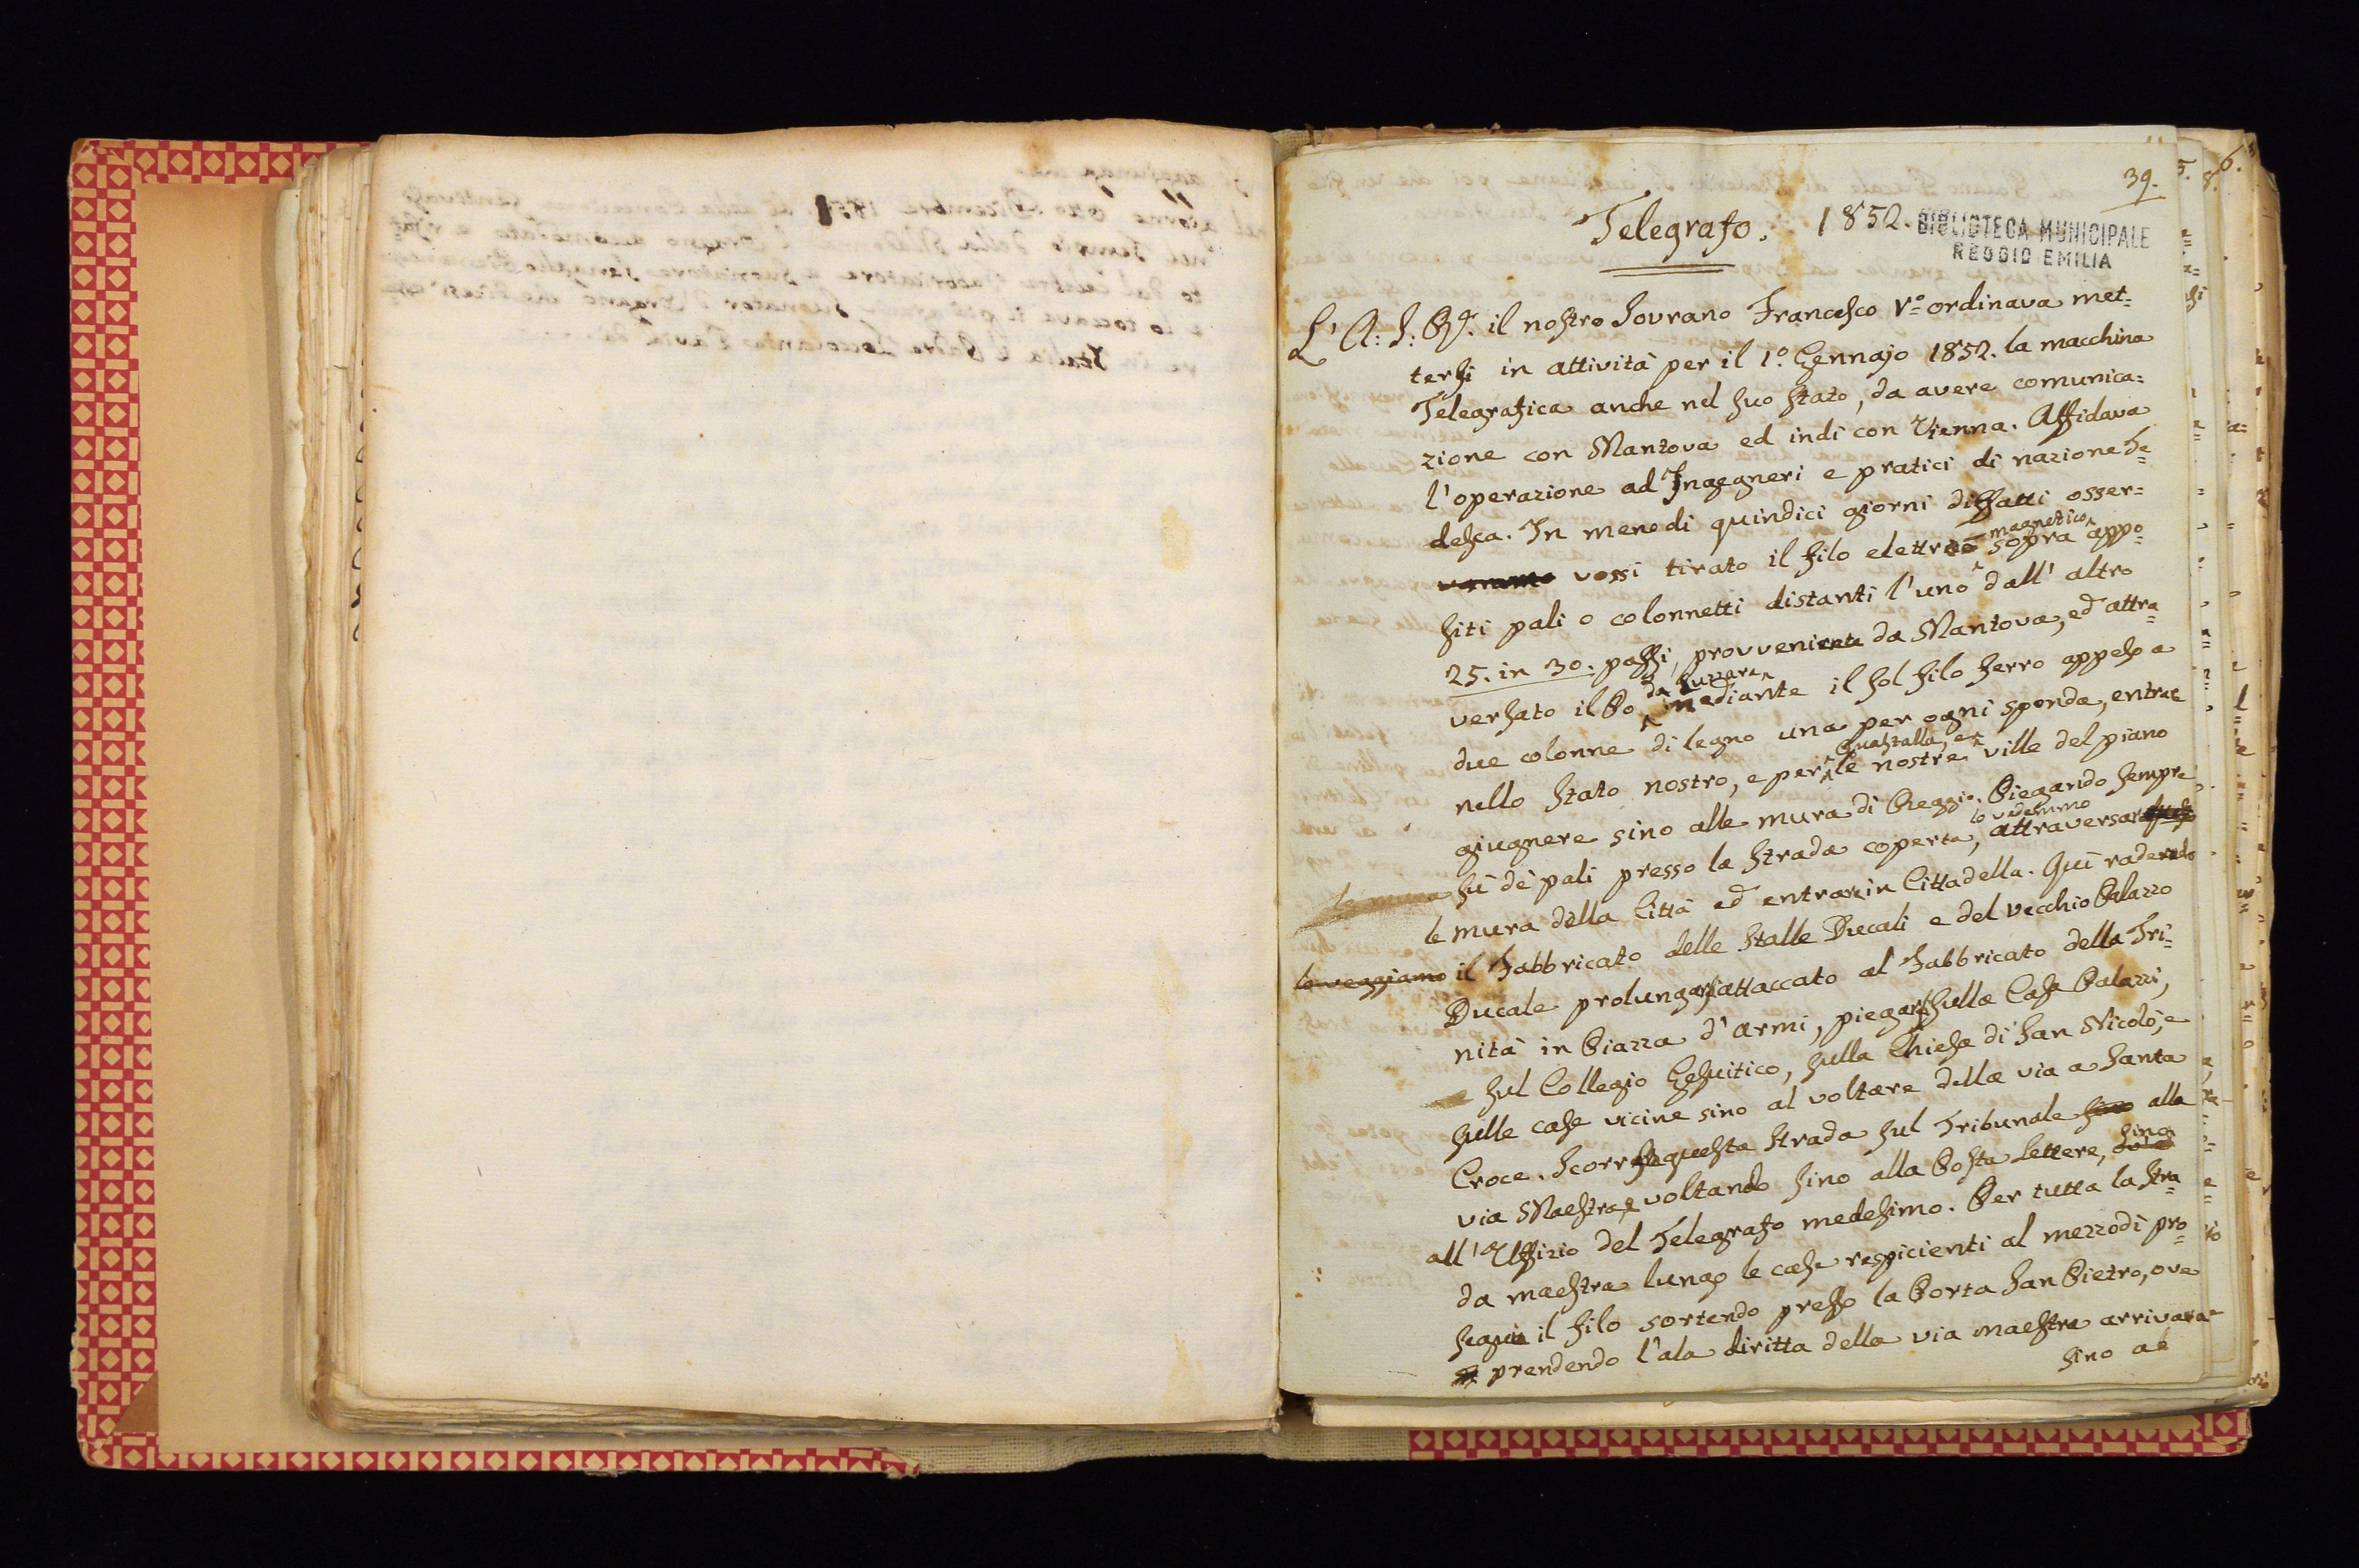 39.
Telegrafo. 1852.
BIBLIOTECA MUNICIPALE
REGGIO EMILIA
L' A: S: R. il nostro Sovrano Francesco V.o ordinava met=
tersi in attività per il 1.o Gennajo 1852. la macchina
Telegrafica anche nel suo stato, da avere comunica=
zione con Mantova ed indi con Vienna. Affidava
l'operazione ad Ingegneri e pratici di nazione Te=
desca. In meno di quindici giorni diffatti osser=
vammo vossi tirato il filo elettrico magnetico sopra appo=
siti pali o colonnetti distanti l'uno dall' altro
25. in 30. passi, provveniente da Mantova, ed attra=
versato il Po da Luzzara mediante il sol filo ferro appeso a
due colonne di legno una per ogni sponda, entrare
nello stato nostro, e per Guastalla, e le nostre ville del piano
giugnere sino alle mura di Reggio. Piegando sempre
sù dè pali presso la strada coperta, lo vedemmo attraversare
le mura
le mura della Città ed entrare in Cittadella. Quì radendo
lo veggiamo il Fabbricato delle Stalle Ducali e del vecchio Palazzo
Ducale prolungarsi attaccato al Fabbricato della Tri=
nità in Piazza d'armi, piegarsi sulla Casa Palazzi,
sul Collegio Gesuitico, sulla Chiesa di San Nicolò, e
sulle case vicine sino al voltare della via a Santa
Croce. Scorre questa strada sul Tribunale sino alla
via Maestra, e voltando sino alla Posta lettere, sino
all' Uffizio del Telegrafo medesimo. Per tutta la stra=
da maestra lungo le case respicienti al mezzodì pro=
seguia il filo sortendo presso la Porta San Pietro, ove
prendendo l'ala diritta della via maestra arrivava
sino al